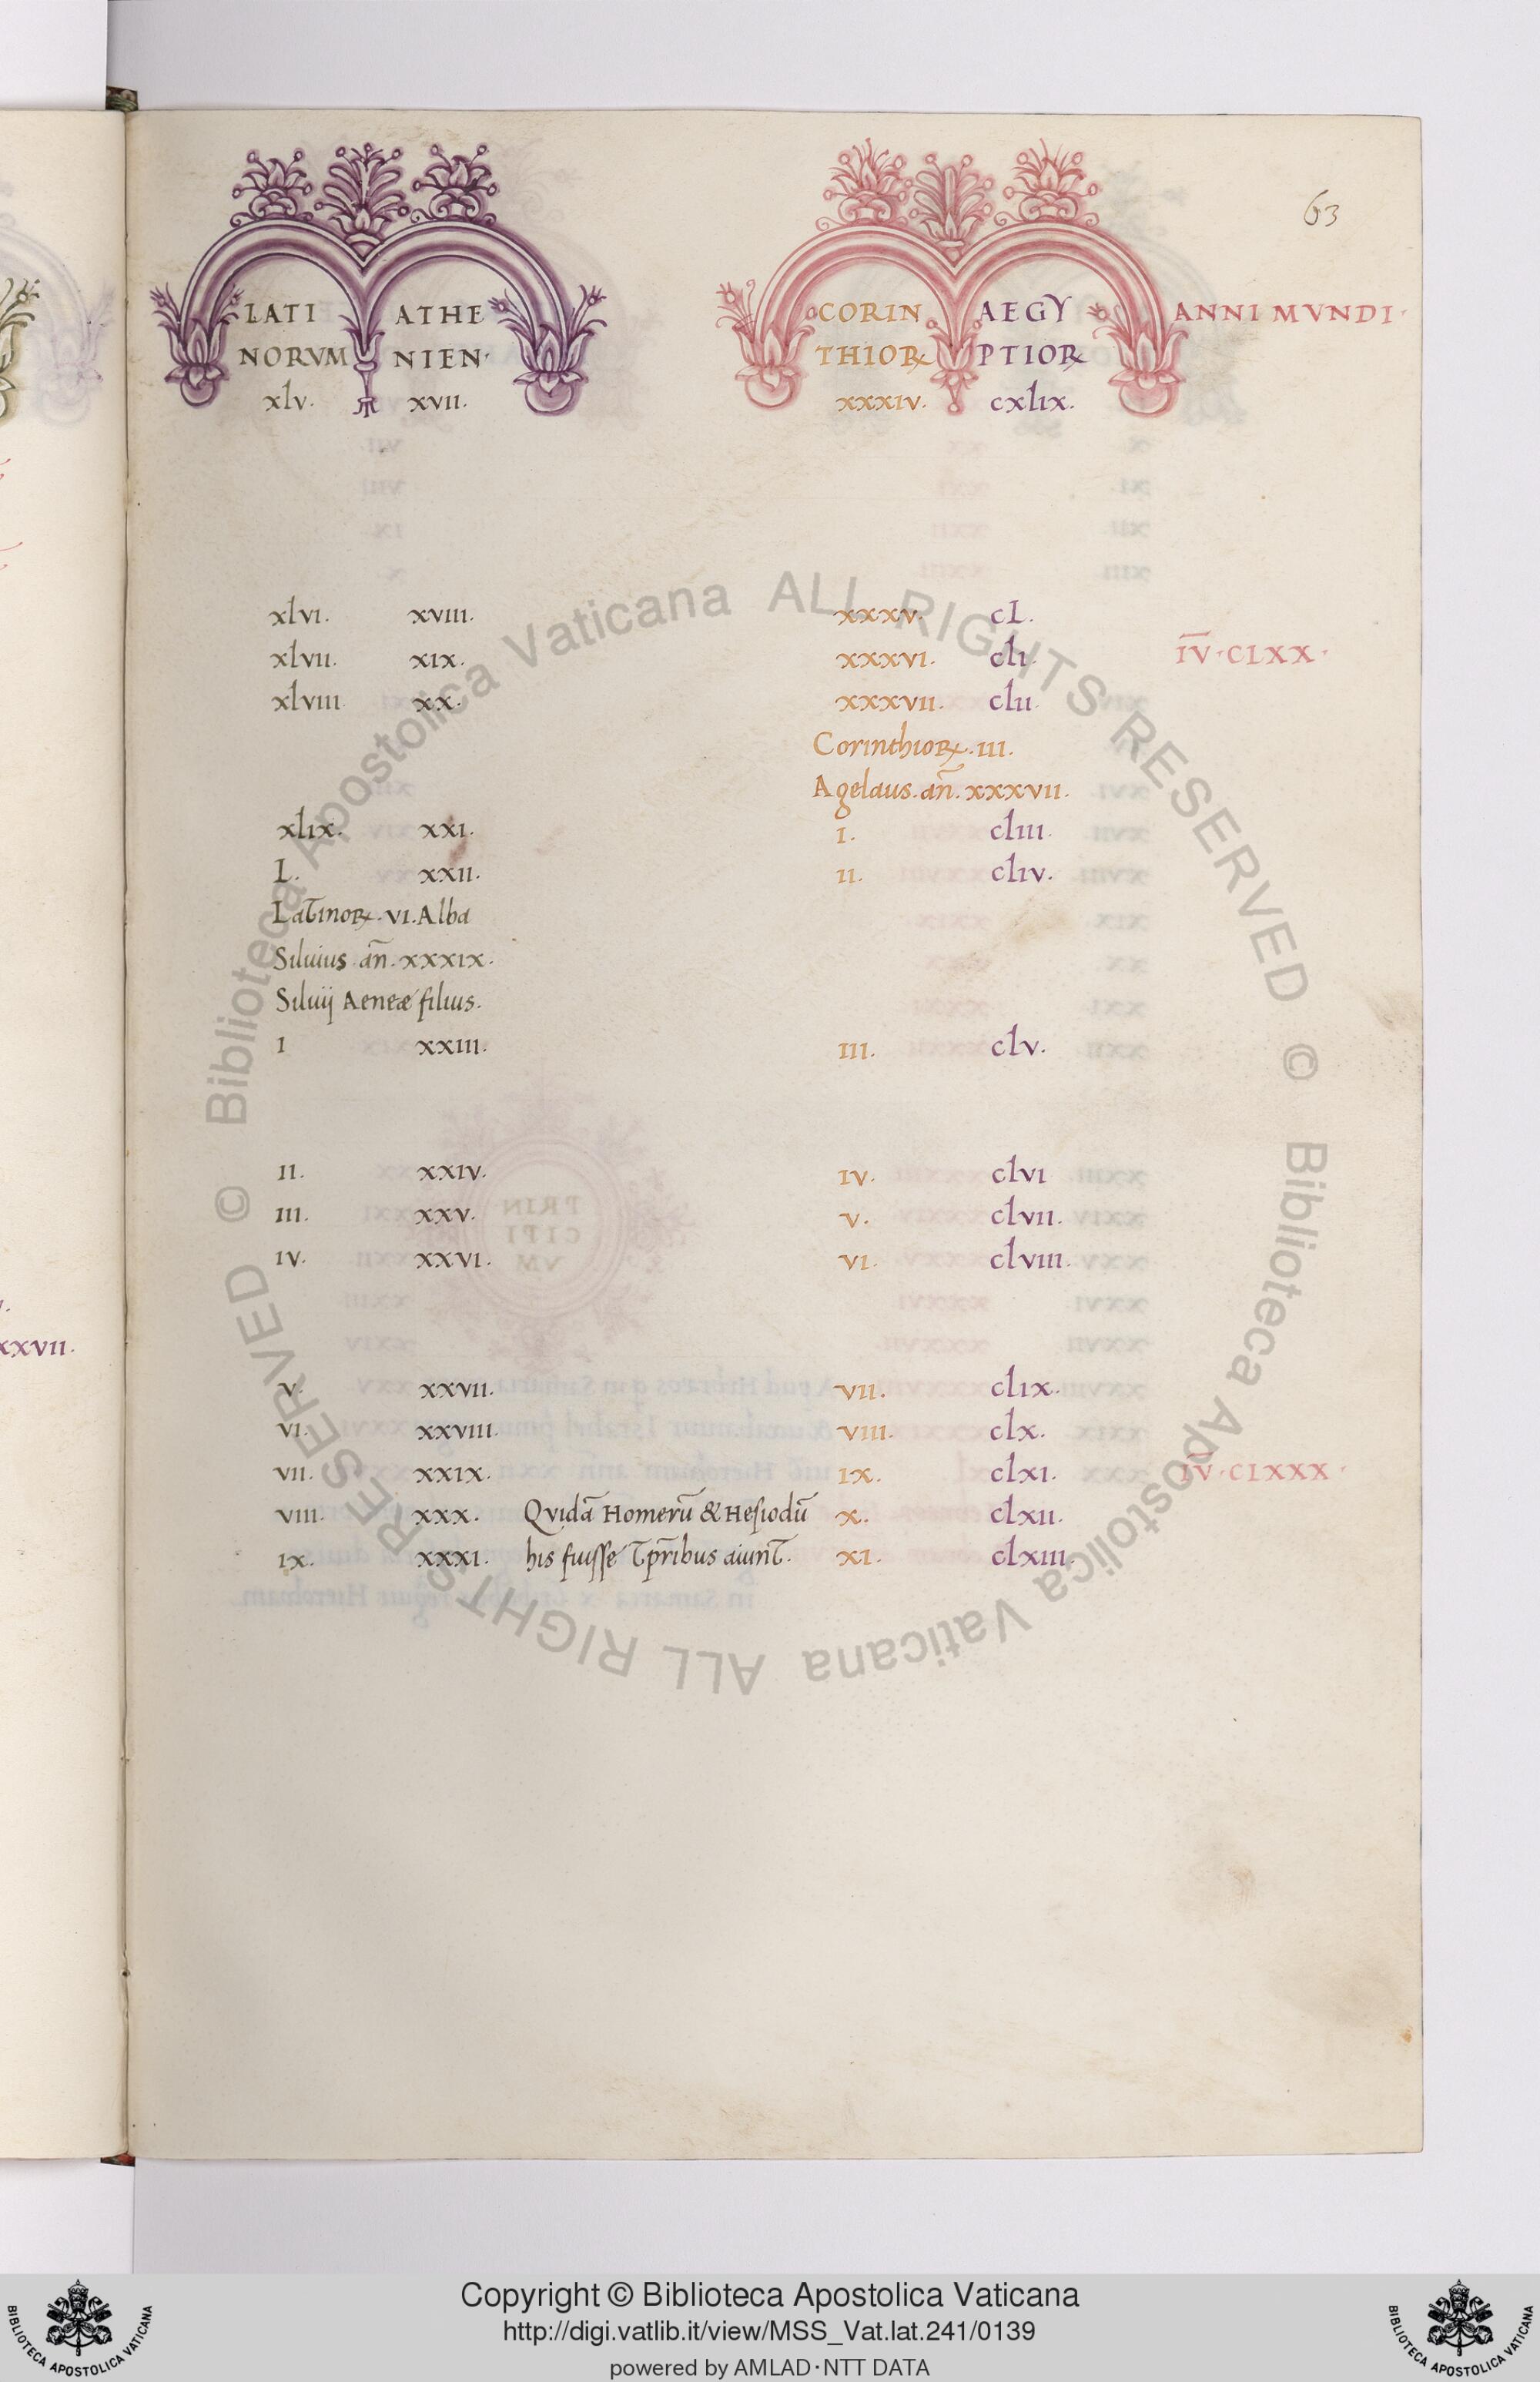 63
LATI ATHE CORIN AEGY ANNI MVNDI·
NORVM NIEN· THIOꝜ PTIOꝜ
xlv. xvii. xxxiv. cxlix.
xlvi. xviii. xxxv. cL.
xlvii. xix. xxxvi. cli. I̅V̅·CLXX·
xlviii. xx. xxxvii. clii.
Corinthioꝝ.iii.
Agelaus.an̄.xxxvii.
xlix. xxi. i. cliii.
L. xxii. ii. cliv.
Latinoꝝ.vi.Alba
Siluius.an̄.xxxix.
Siluij Aeneæ filius.
i xxiii. iii. clv.
ii. xxiv. iv. clvi
iii. xxv. v. clvii.
iv. xxvi. vi. clviii.
v. xxvii. vii. clix.
vi. xxviii. viii. clx.
vii. xxix. ix. clxi. I̅V̅·CLXXX·
viii. xxx. Qvidā Homerū & Hesiodū x. clxii.
ix. xxxi. his fuisse tp̄ribus aiunt. xi. clxiii.
xxvii.
© Biblioteca Apostolica Vaticana ALL RIGHTS RESERVED
© Biblioteca Apostolica Vaticana ALL RIGHTS RESERVED
BIBLIOTECA APOSTOLICA VATICANA
Copyright © Biblioteca Apostolica Vaticana
http://digi.vatlib.it/view/MSS_Vat.lat.241/0139
powered by AMLAD·NTT DATA
BIBLIOTECA APOSTOLICA VATICANA